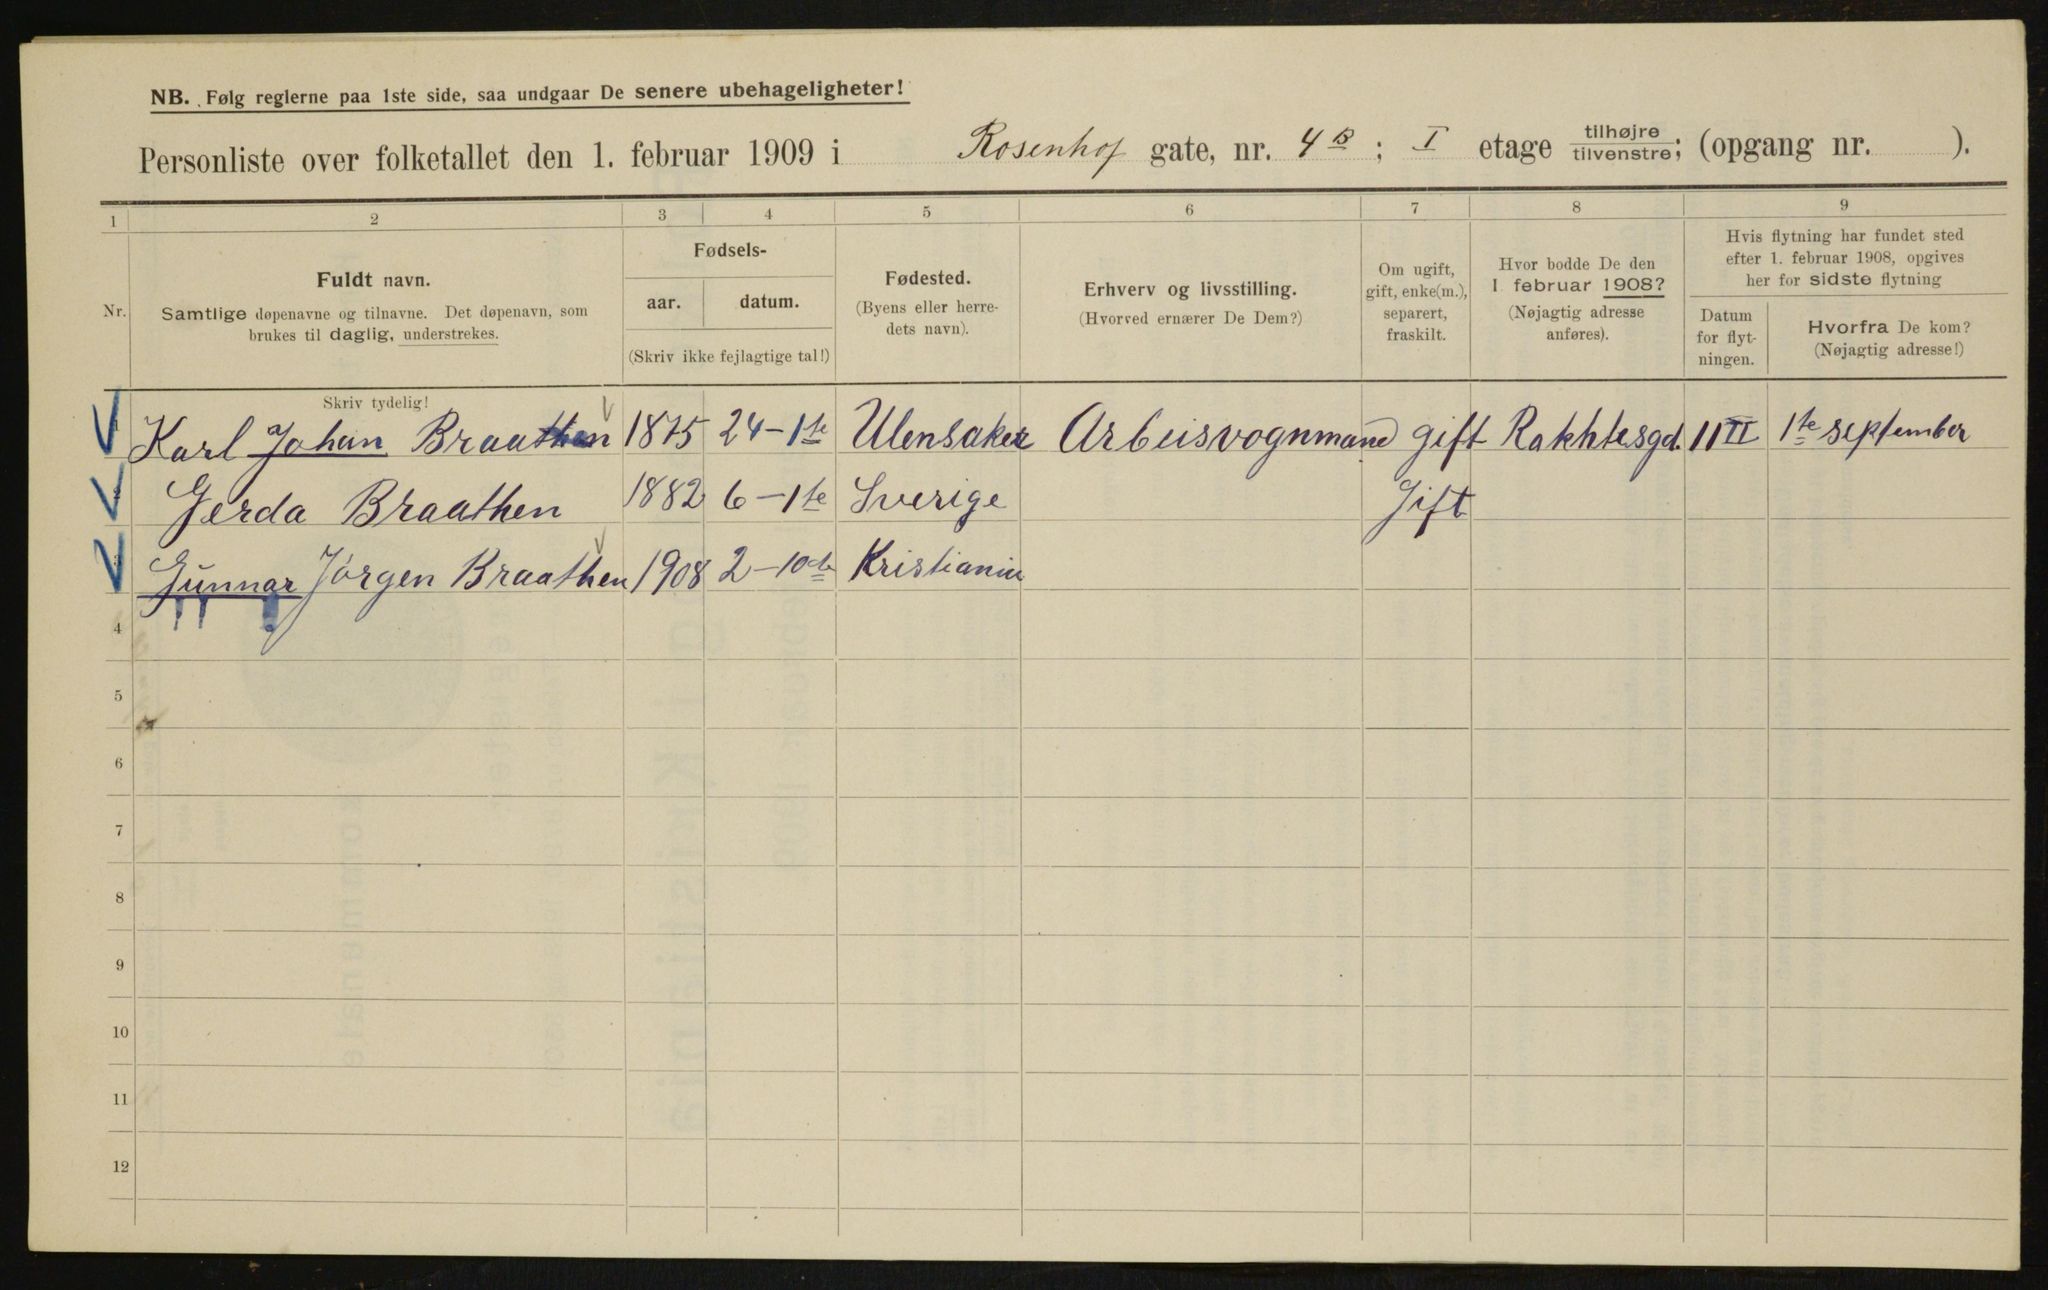 NB. Følg reglerne paa 1ste side, saa undgaar De senere ubehageligheter!
Personliste over folketallet den 1. februar 1909 i Rosenhof gate, nr. 4 B ; I etage tilhøjre tilvenstre; (opgang nr. ).
1 2 3 4 5 6 7 8 9
Nr.
Fuldt navn.
Samtlige døpenavne og tilnavne. Det døpenavn, som
brukes til daglig, understrekes.
Fødsels-
aar. datum.
(Skriv ikke fejlagtige tal!)
Fødested.
(Byens eller herre-
dets navn).
Erhverv og livsstilling.
(Hvorved ernærer De Dem?)
Om ugift,
gift, enke(m.),
separert,
fraskilt.
Hvor bodde De den
1 februar 1908?
(Nøjagtig adresse
anføres).
Hvis flytning har fundet sted
efter 1. februar 1908, opgives
her for sidste flytning
Datum
for flyt-
ningen.
Hvorfra De kom?
(Nøjagtig adresse!)
Skriv tydelig!
Karl Johan Braathen 1875 24-1te Ulensaker Arbeisvognmand gift Rakhtesgd. 11 II 1te september
Gerda Braathen 1882 6-1te Sverige Gift
Gunnar Jørgen Braathen 1908 2-10de Kristiania
4
5
6
7
8
9
10
11
12